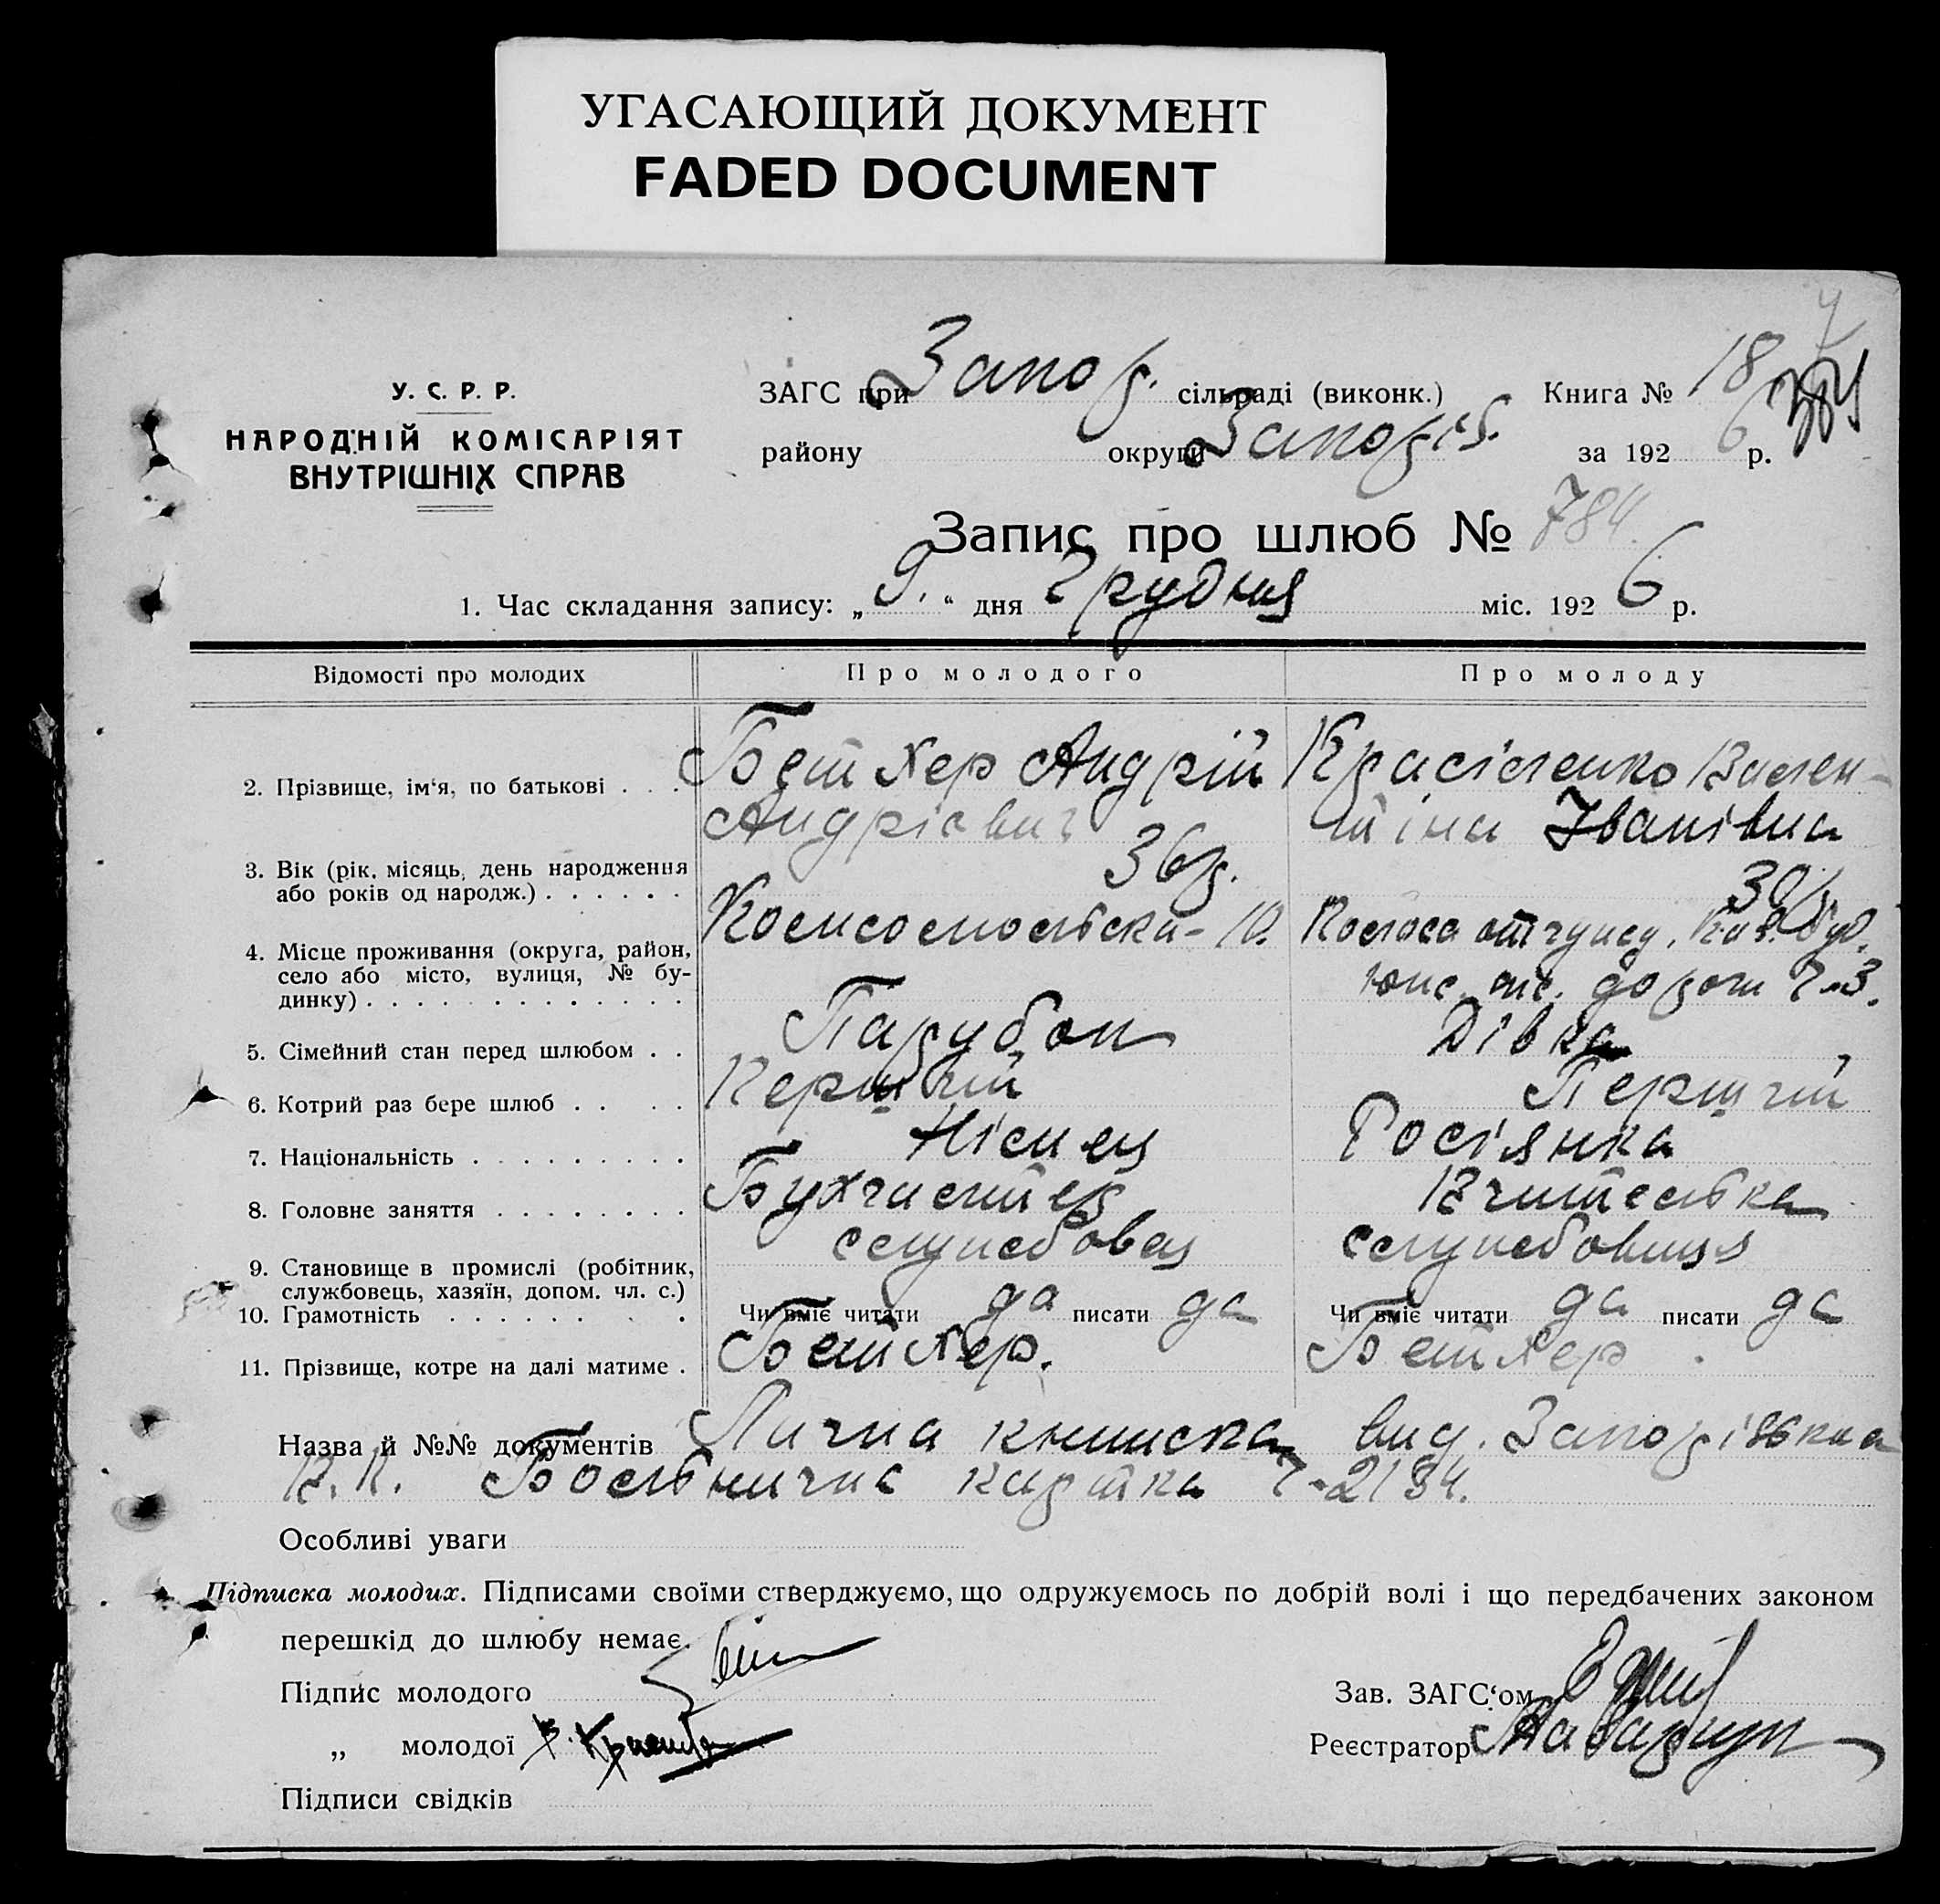 УГАСАЮЩИЙ ДОКУМЕНТ
FADED DOCUMENT
У. С. Р. Р.
НАРОДНІЙ КОМІСАРІЯТ
ВНУТРІШНІХ СПРАВ
ЗАГС при Запор. сільраді (виконк.) Книга № 18
району округи Запоріз. за 1926 р.
Запис про шлюб № 784.
1. Час складання запису: „9.“ дня Грудня міс. 1926 р.
Відомості про молодих Про молодого Про молоду
2. Прізвище, ім‘я, по батькові . . . Бетхер Андрій Красіленко Вален-
Андрієвич тіна Іванівна
3. Вік (рік, місяць, день народження
або років од народж.) . . . . . . 36 р. 30
4. Місце проживання (округа, район,
село або місто, вулиця, № бу-
динку) . . . . . . . . . . . . . Комсомольска - 10.
5. Сімейний стан перед шлюбом . . Парубок Дівка
6. Котрий раз бере шлюб . . . . Перший Перший
7. Національність . . . . . . . . . Німец Росіянка
8. Головне заняття . . . . . . . . Бухгалтер Вчителька
9. Становище в промислі (робітник,
службовець, хазяїн, допом. чл. с.) служебовец служебовиця
10. Грамотність . . . . . . . . . Чи вміє читати да писати да Чи вміє читати да писати да
11. Прізвище, котре на далі матиме . Бетхер. Бетхер.
Назва й №№ документів Лична книжка вид. Запоріжька
В.К. Больнична картка Ч-2134.
Особливі уваги
Підписка молодих. Підписами своїми стверджуємо, що одружуємось по добрій волі і що передбачених законом
перешкід до шлюбу немає.
Підпис молодого Зав. ЗАГС‘ом
„ молодої Реєстратор
Підписи свідків